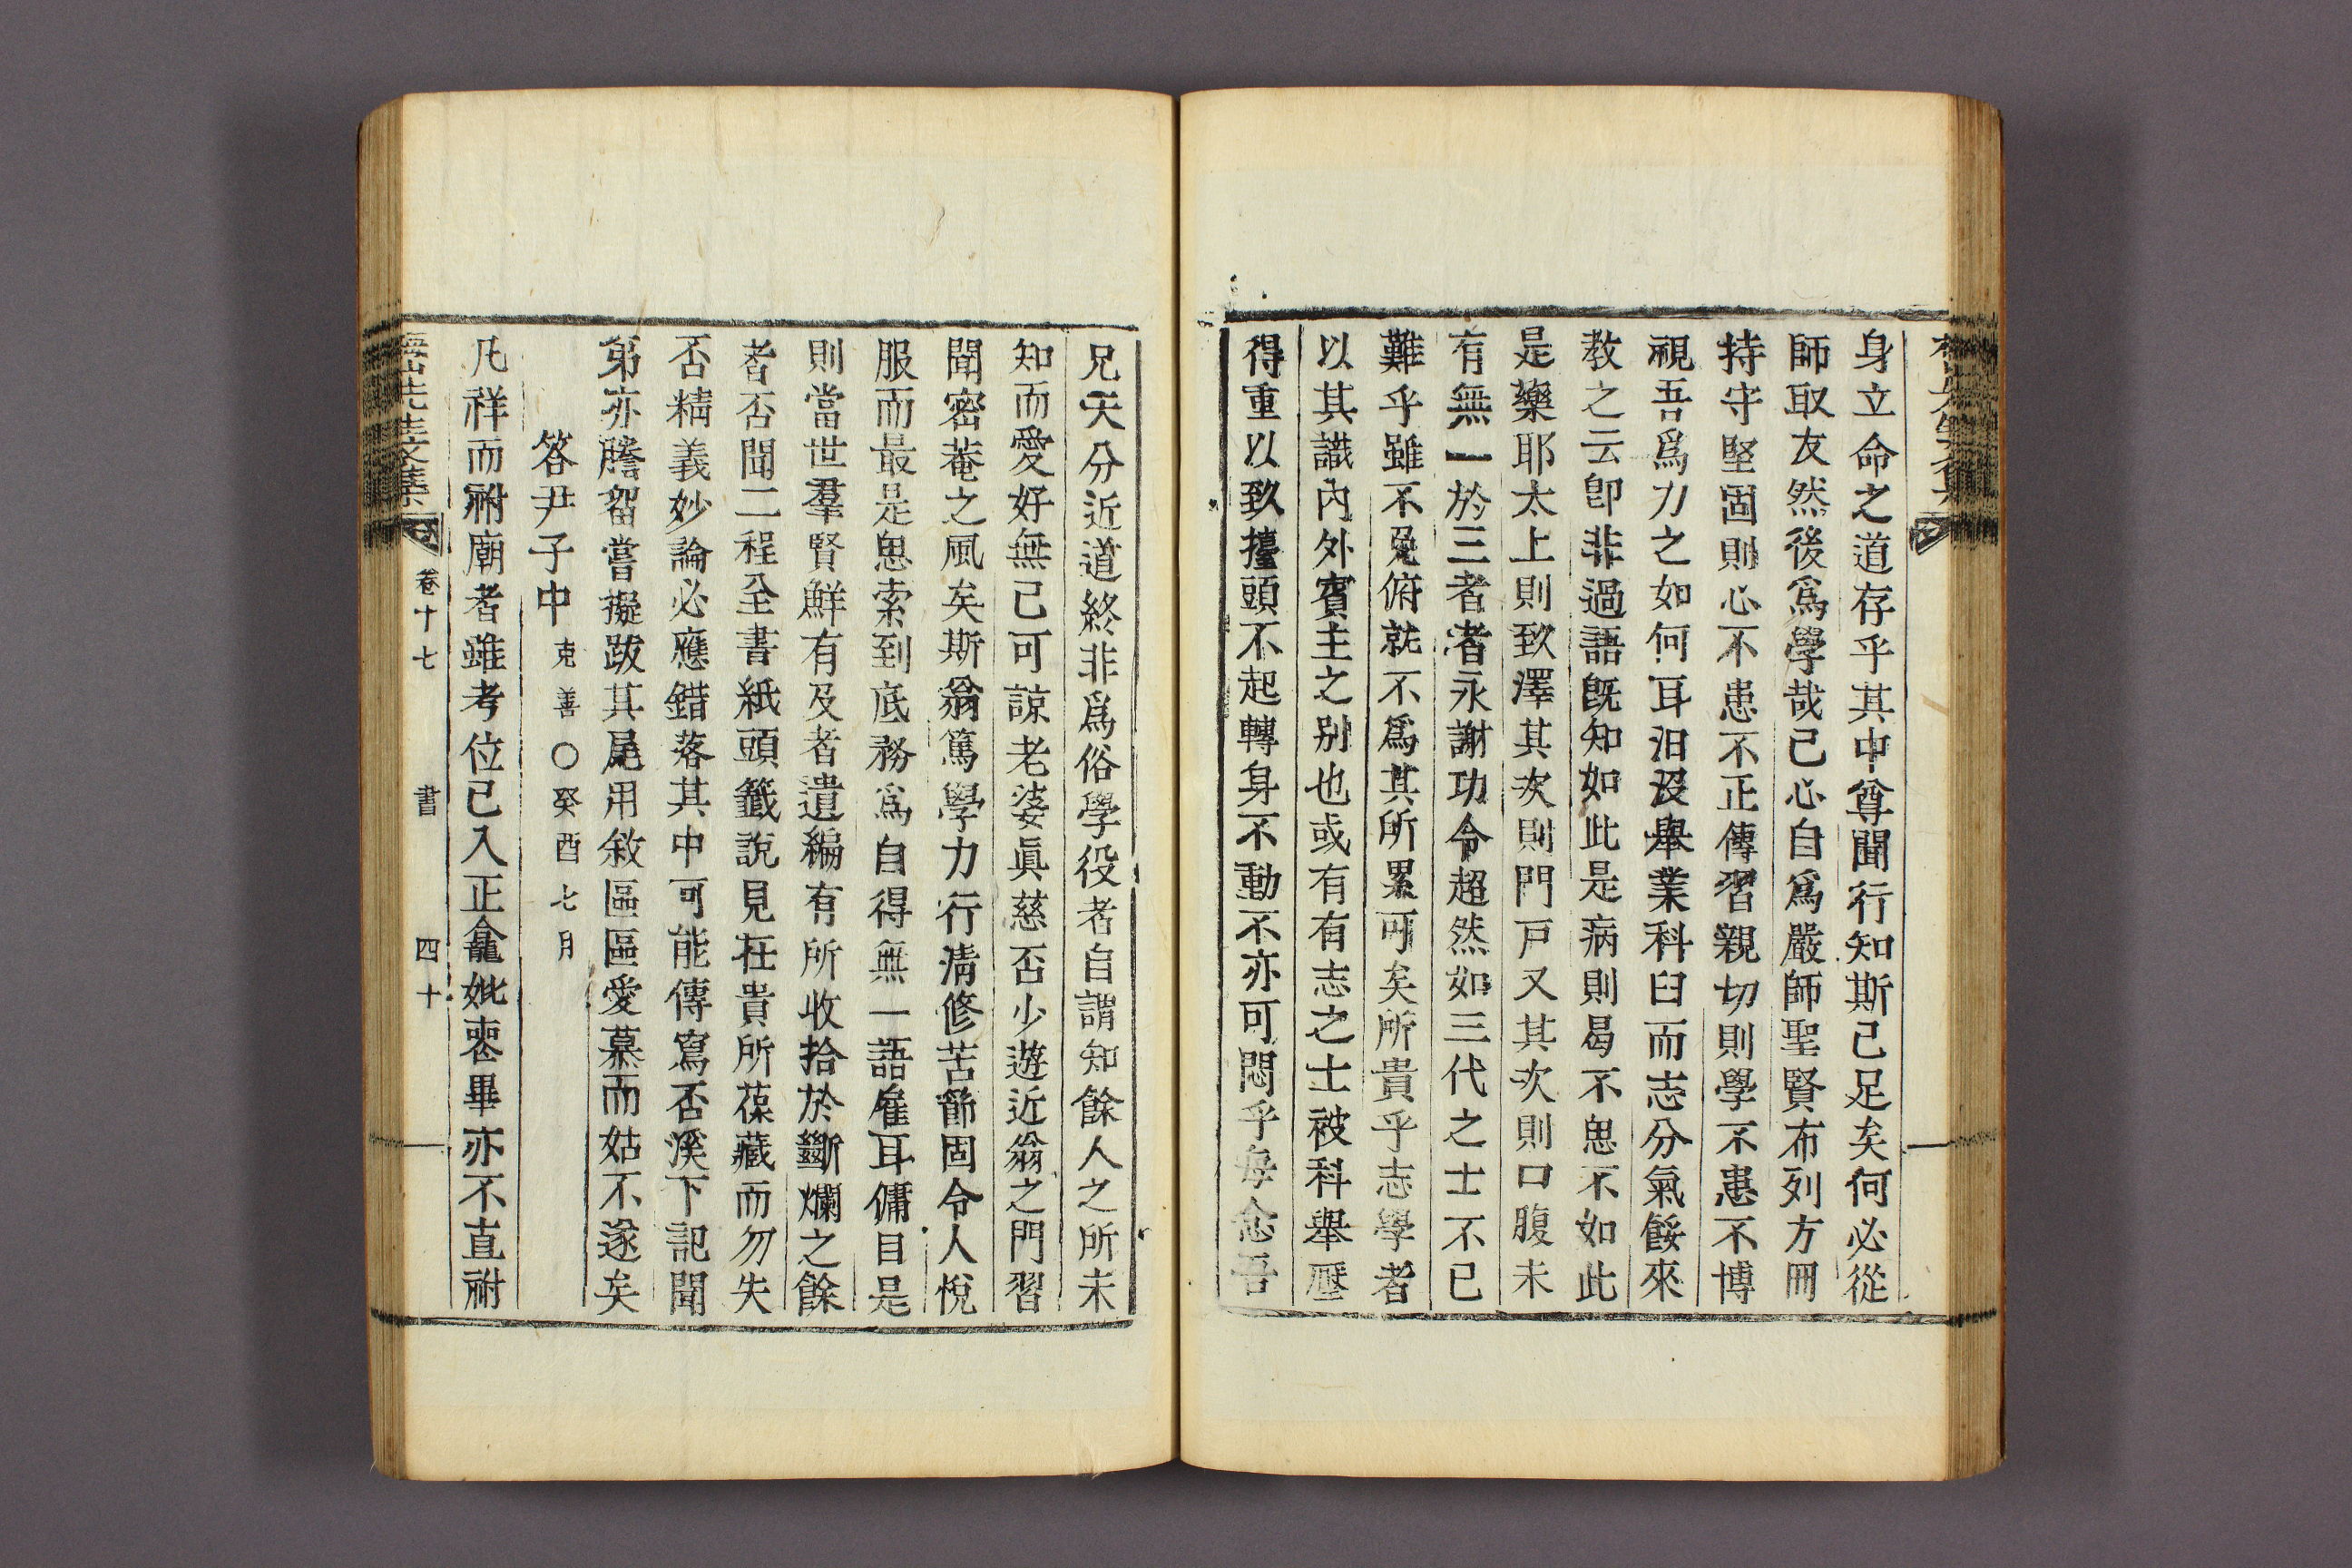 身立命之道存乎其中尊聞行知斯已足矣何必從
師取友然後爲學哉己心自爲嚴師聖賢布列方冊
持守堅固則心不患不正傳習親切則學不患不博
視吾爲力之如何耳汩沒擧業科臼而志分氣餒來
教之云卽非過語旣知如此是病則曷不思不如此
是藥耶太上則致澤其次則門戶又其次則口腹未
有無一於三者者永謝功令超然如三代之士不已
難乎雖不免俯就不爲其所累可矣所貴乎志學者
以其識內外賓主之別也或有有志之士被科擧壓
得重以致擡頭不起轉身不動不亦可悶乎每念吾
兄天分近道終非爲俗學役者自謂知餘人之所未
知而愛好無已可諒老婆眞慈否少遊近翁之門習
聞密菴之風矣斯翁篤學力行淸修苦節固令人悅
服而最是思索到底務爲自得無一語雇耳傭目是
則當世羣賢鮮有及者遺編有所收拾於斷爛之餘
者否聞二程全書紙頭籤說見在貴所葆藏而勿失
否精義妙論必應錯落其中可能傳寫否溪下記聞
第亦謄留嘗擬跋其尾用敘區區愛慕而姑不遂矣
答尹子中 克善○癸酉七月
凡祥而祔廟者雖考位已入正龕妣喪畢亦不直祔
卷十七 書 四十